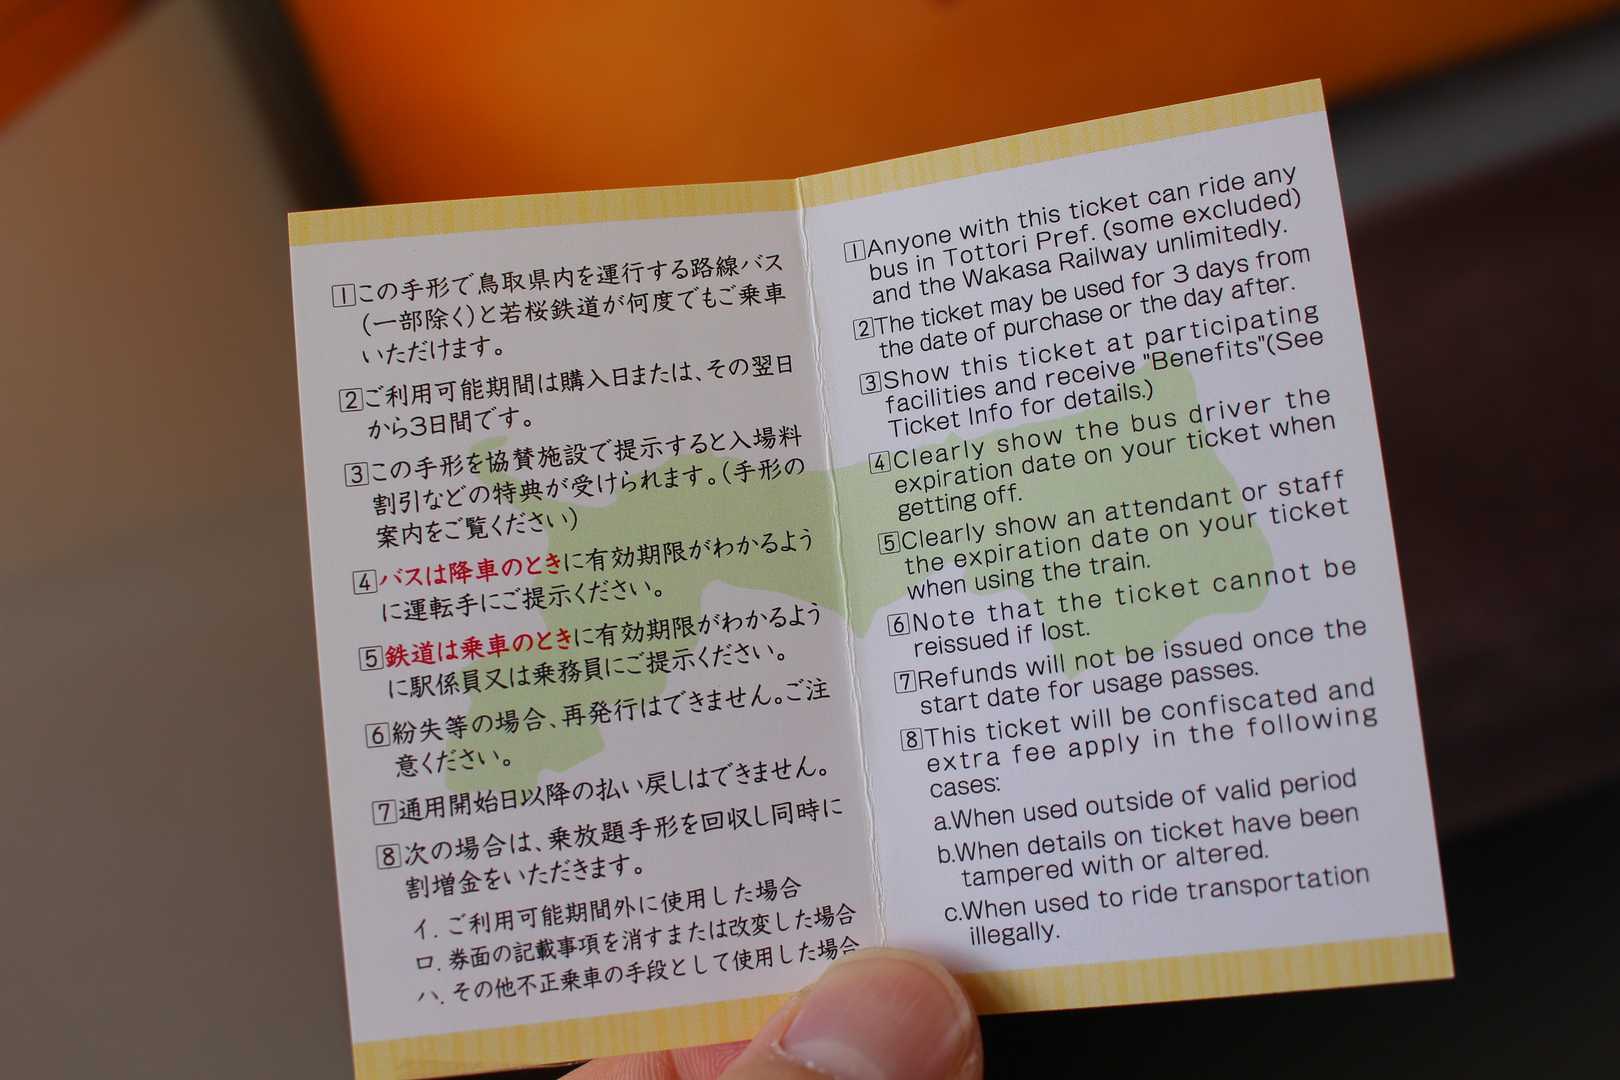 1この手形で鳥取県内を運行する路線バス
(一部除く)と若桜鉄道が何度でもご乗車
いただけます。
2ご利用可能期間は購入日または、その翌日
から3日間です。
3この手形を協賛施設で提示すると入場料
割引などの特典が受けられます。(手形の
案内をご覧ください)
4バスは降車のときに有効期限がわかるよう
に運転手にご提示ください。
5鉄道は乗車のときに有効期限がわかるよう
に駅係員又は乗務員にご提示ください。
6紛失等の場合、再発行はできません。ご注
意ください。
7通用開始日以降の払い戻しはできません。
8次の場合は、乗放題手形を回収し同時に
割増金をいただきます。
イ. ご利用可能期間外に使用した場合
ロ. 券面の記載事項を消すまたは改変した場合
ハ. その他不正乗車の手段として使用した場合
1Anyone with this ticket can ride any
bus in Tottori Pref. (some excluded)
and the Wakasa Railway unlimitedly.
2The ticket may be used for 3 days from
the date of purchase or the day after.
3Show this ticket at participating
facilities and receive "Benefits"(See
Ticket Info for details.)
4Clearly show the bus driver the
expiration date on your ticket when
getting off.
5Clearly show an attendant or staff
the expiration date on your ticket
when using the train.
6Note that the ticket cannot be
reissued if lost.
7Refunds will not be issued once the
start date for usage passes.
8This ticket will be confiscated and
extra fee apply in the following
cases:
a.When used outside of valid period
b.When details on ticket have been
tampered with or altered.
c.When used to ride transportation
illegally.